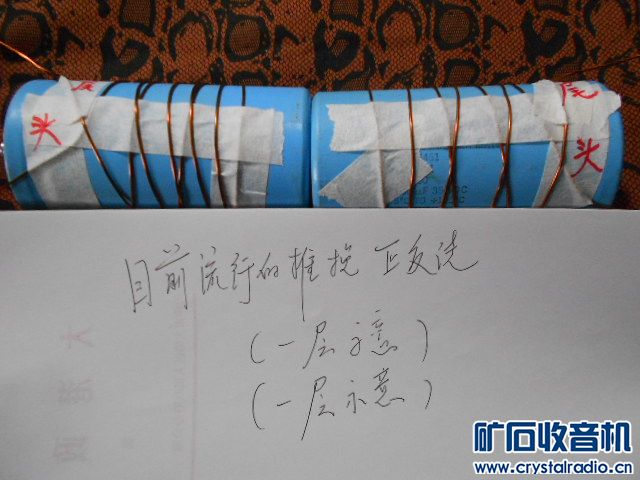 尾
头
尾
头
目前流行的推挽正反绕
(一层示意)
(一层示意)
矿石收音机
www.crystalradio.cn